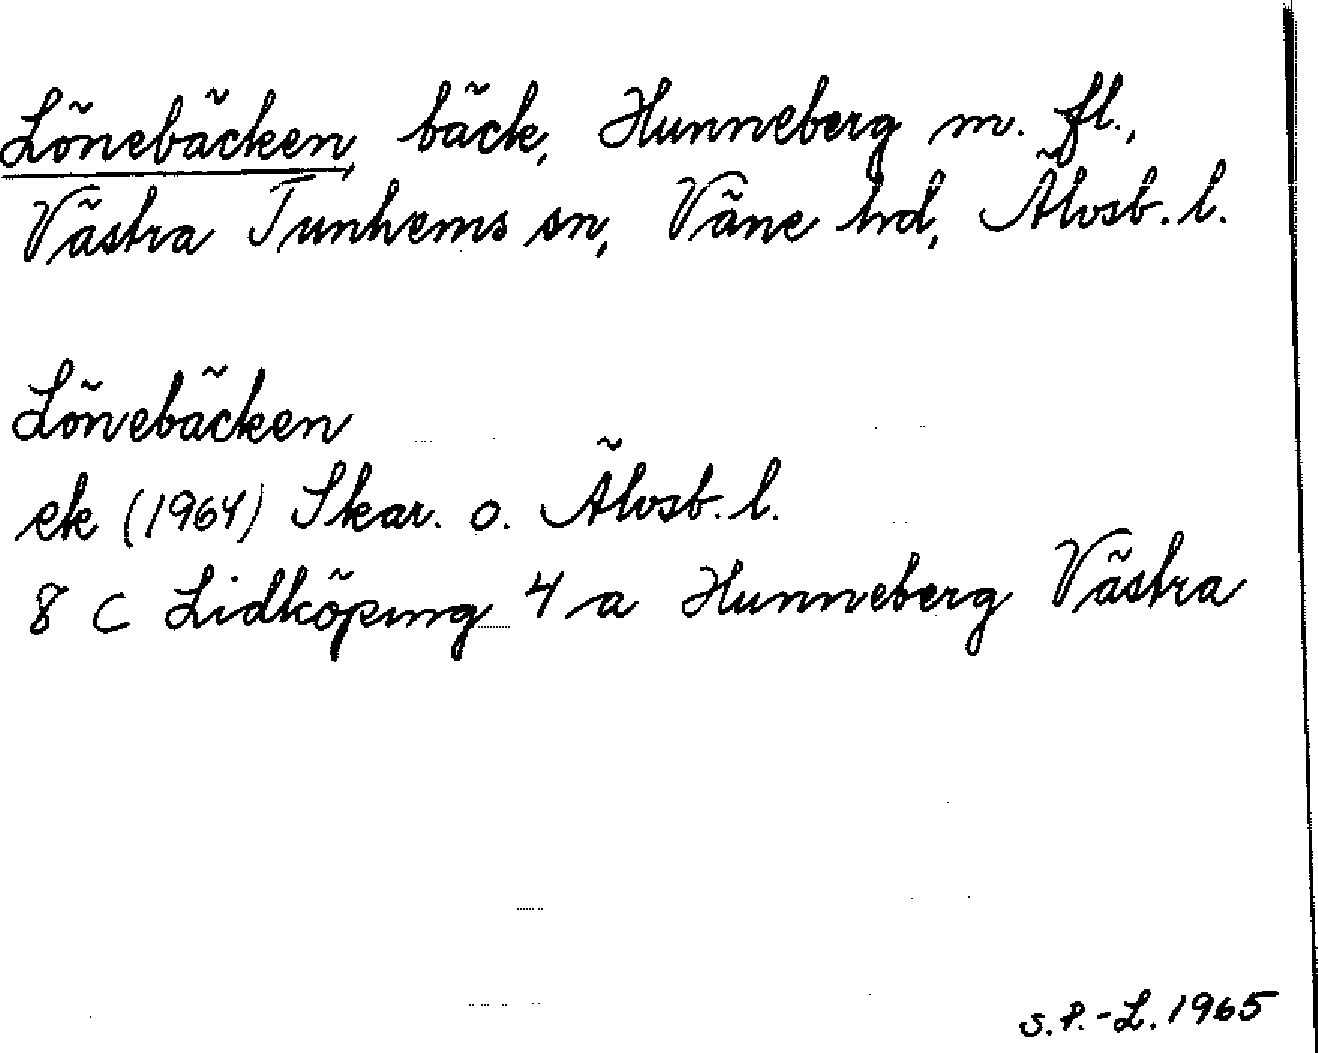 Lönebäcken, bäck, Hunneberg m. fl.,
Västra Tunhems sn, Väne hd, Älvsb. l.
Lönebäcken
ek (1964) Skar. o. Älvsb. l.
8 C Lidköping 4 a Hunneberg Västra
S.P.-L. 1965